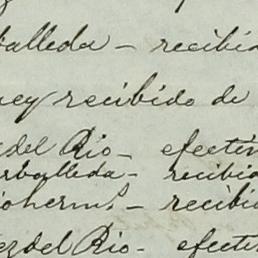 balleda - recibid
ney recibido de
del Rio - efectiv
rballeda - recibid
ioherms. - recibid
ezdel Rio - efectiv